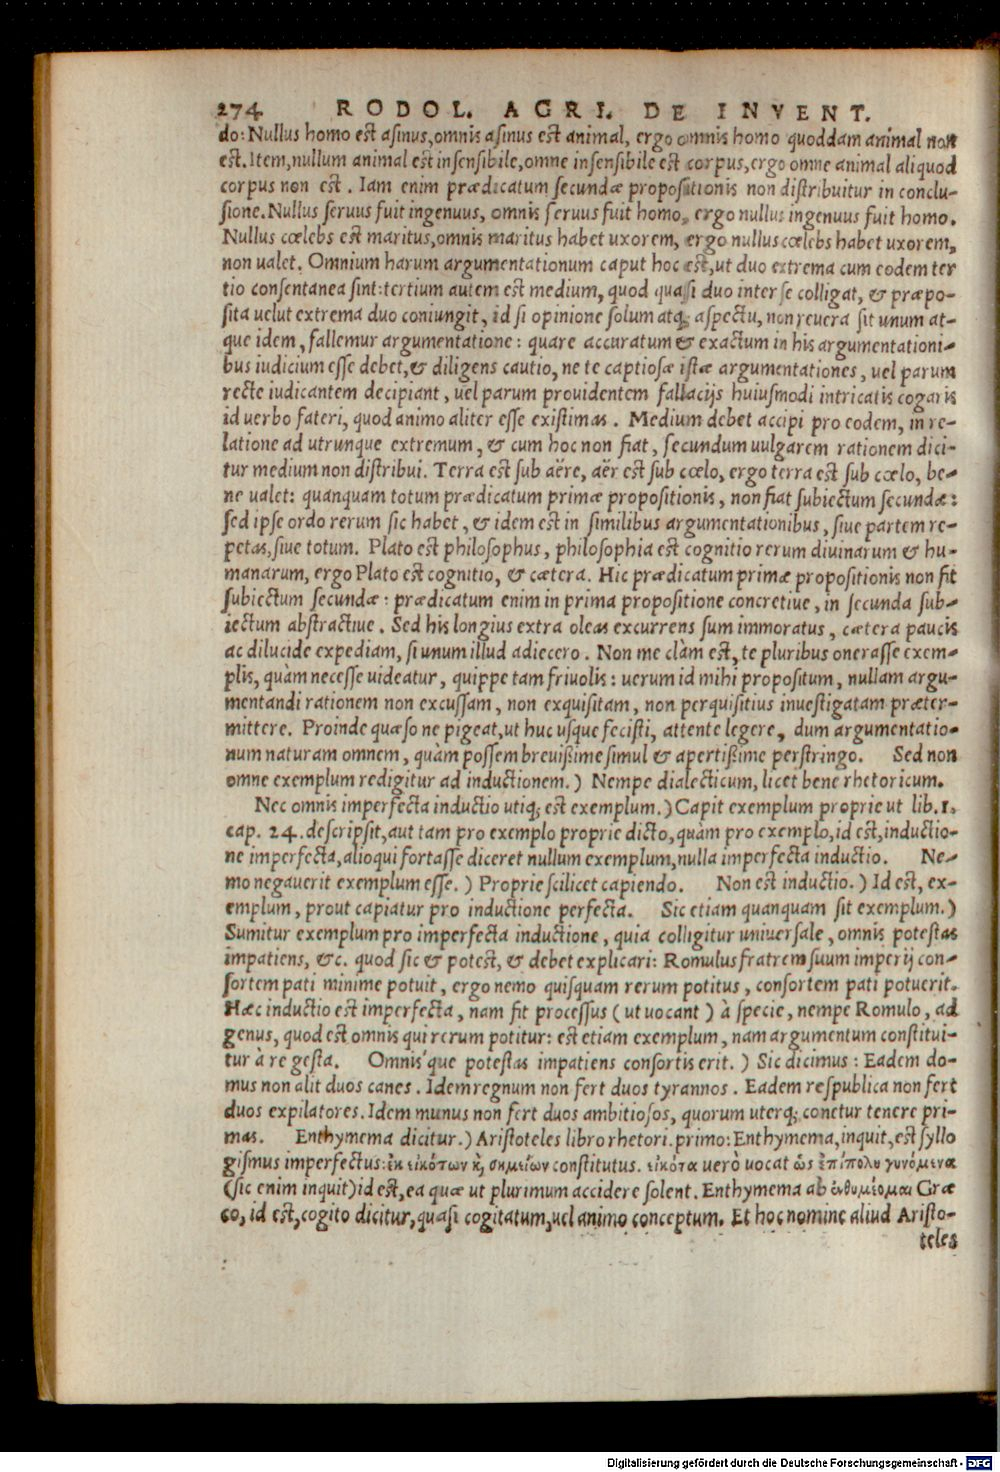 274 RODOL. AGRI. DE INVENT.
do: Nullus homo est asinus, omnis asinus est animal, ergo omnis homo quoddam animal non
est. Item, nullum animal est insensibile, omne insensibile est corpus, ergo omne animal aliquod
corpus non est. Iam enim prædicatum secundæ propositionis non distribuitur in conclu-
sione. Nullus seruus fuit ingenuus, omnis seruus fuit homo, ergo nullus ingenuus fuit homo.
Nullus cœlebs est maritus, omnis maritus habet uxorem, ergo nullus cœlebs habet uxorem,
non ualet. Omnium harum argumentationum caput hoc est, ut duo extrema cum eodem ter
tio consentanea sint: tertium autem est medium, quod quasi duo inter se colligat, & præpo-
sita uelut extrema duo coniungit, id si opinione solum atq; aspectu, non reuera sit unum at-
que idem, fallemur argumentatione: quare accuratum & exactum in his argumentationi-
bus iudicium esse debet, & diligens cautio, ne te captiosæ istæ argumentationes, uel parum
recte iudicantem decipiant, uel parum prouidentem fallacijs huiusmodi intricatis cogaris
id uerbo fateri, quod animo aliter esse existimas. Medium debet accipi pro eodem, in re-
latione ad utrunque extremum, & cum hoc non fiat, secundum uulgarem rationem dici-
tur medium non distribui. Terra est sub aëre, aër est sub cœlo, ergo terra est sub cœlo, be-
ne ualet: quanquam totum prædicatum primæ propositionis, non fiat subiectum secundæ:
sed ipse ordo rerum sic habet, & idem est in similibus argumentationibus, siue partem re-
petas, siue totum. Plato est philosophus, philosophia est cognitio rerum diuinarum & hu-
manarum, ergo Plato est cognitio, & cætera. Hic prædicatum primæ propositionis non fit
subiectum secundæ: prædicatum enim in prima propositione concretiue, in secunda sub-
iectum abstractiue. Sed his longius extra oleas excurrens sum immoratus, cætera paucis
ac dilucide expediam, si unum illud adiecero. Non me clàm est, te pluribus onerasse exem-
plis, quàm necesse uideatur, quippe tam friuolis: uerum id mihi propositum, nullam argu-
mentandi rationem non excussam, non exquisitam, non perquisitius inuestigatam præter-
mittere. Proinde quæso ne pigeat, ut huc usque fecisti, attente legere, dum argumentatio-
num naturam omnem, quàm possem breuißime simul & apertißime perstringo. Sed non
omne exemplum redigitur ad inductionem.) Nempe dialecticum, licet bene rhetoricum.
Nec omnis imperfecta inductio utiq; est exemplum.) Capit exemplum proprie ut lib. 1.
cap. 24. descripsit, aut tam pro exemplo proprie dicto, quàm pro exemplo, id est, inductio-
ne imperfecta, alioqui fortasse diceret nullum exemplum, nulla imperfecta inductio. Ne-
mo negauerit exemplum esse.) Proprie scilicet capiendo. Non est inductio.) Id est, ex-
emplum, prout capiatur pro inductione perfecta. Sic etiam quanquam sit exemplum.)
Sumitur exemplum pro imperfecta inductione, quia colligitur uniuersale, omnis potestas
impatiens, &c. quod sic & potest, & debet explicari: Romulus fratrem suum imperij con-
sortem pati minime potuit, ergo nemo quisquam rerum potitus, consortem pati potuerit.
Hæc inductio est imperfecta, nam fit processus (ut uocant) à specie, nempe Romulo, ad
genus, quod est omnis qui rerum potitur: est etiam exemplum, nam argumentum constitui-
tur à re gesta. Omnis'que potestas impatiens consortis erit.) Sic dicimus: Eadem do-
mus non alit duos canes. Idem regnum non fert duos tyrannos. Eadem respublica non fert
duos expilatores. Idem munus non fert duos ambitiosos, quorum uterq; conetur tenere pri-
mas. Enthymema dicitur.) Aristoteles libro rhetori. primo: Enthymema, inquit, est syllo
gismus imperfectus: ἐκ εἰκότων κỳ σημείων constitutus. εἰκότα uerò uocat ὡς ἐπίπολυ γινόμενα
(sic enim inquit) id est, ea quæ ut plurimum accidere solent. Enthymema ab ἐνθυμέομαι Græ
co, id est, cogito dicitur, quasi cogitatum, uel animo conceptum. Et hoc nomine aliud Aristo-
teles
Digitalisierung gefördert durch die Deutsche Forschungsgemeinschaft - DFG